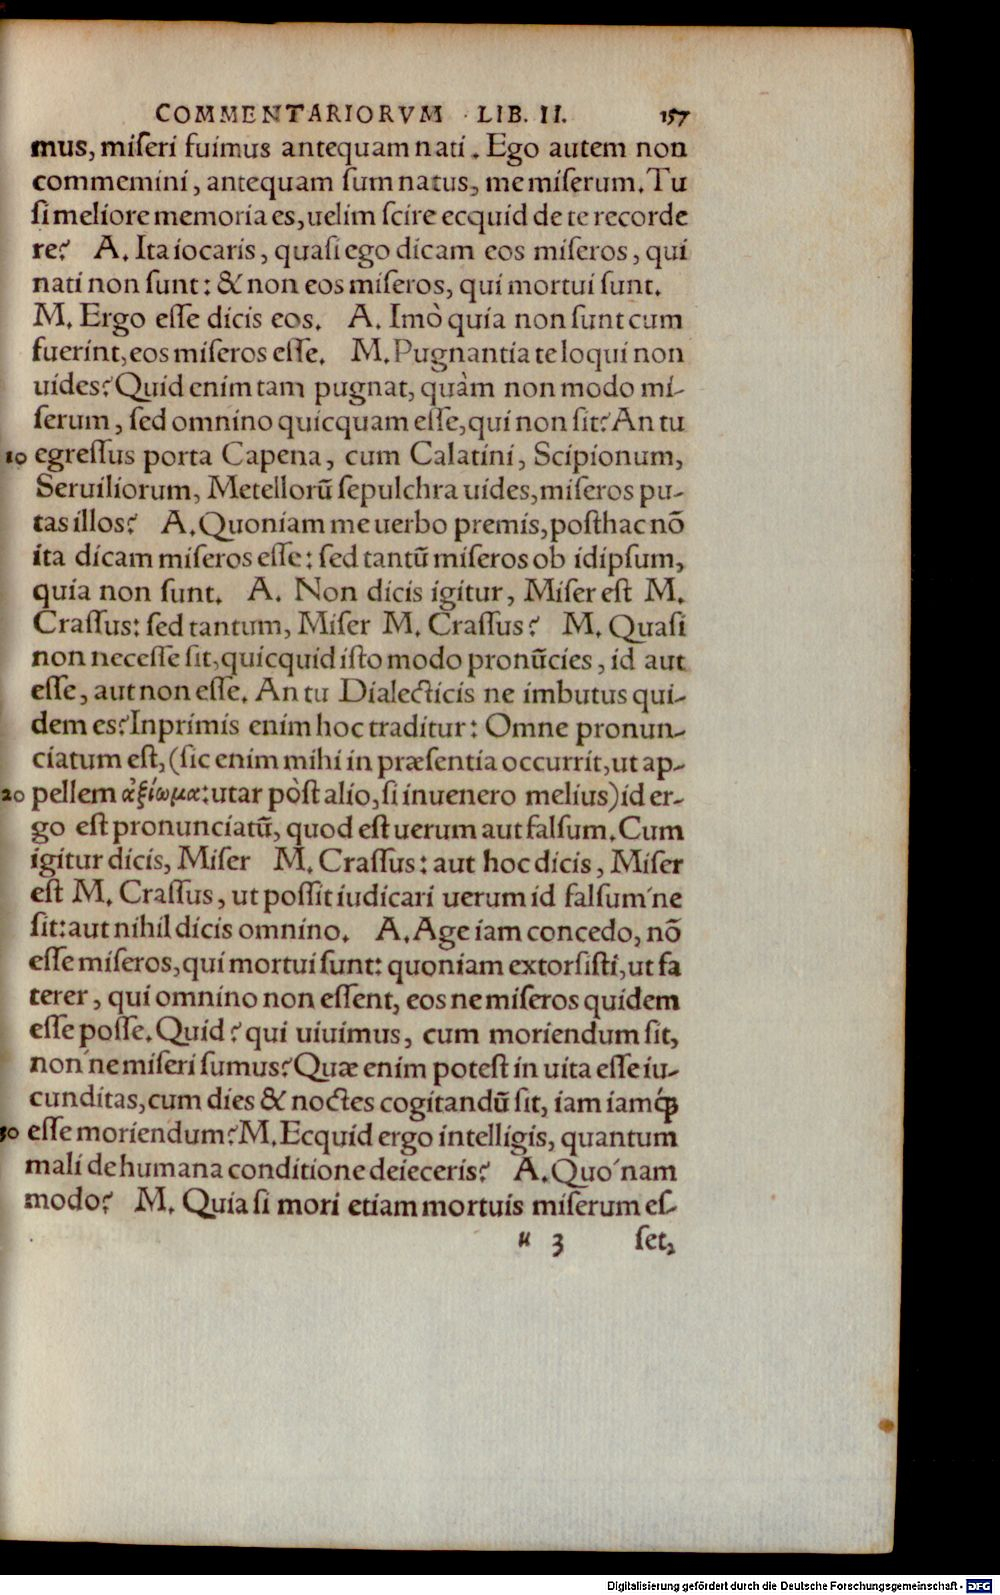 COMMENTARIORVM LIB. II. 157
mus, miseri fuimus antequam nati. Ego autem non
commemini, antequam sum natus, me miserum. Tu
si meliore memoria es, uelim scire ecquid de te recorde
re? A. Ita iocaris, quasi ego dicam eos miseros, qui
nati non sunt: & non eos miseros, qui mortui sunt.
M. Ergo esse dicis eos. A. Imò quia non sunt cum
fuerint, eos miseros esse. M. Pugnantia te loqui non
uides? Quid enim tam pugnat, quàm non modo mi-
serum, sed omnino quicquam esse, qui non sit? An tu
10 egressus porta Capena, cum Calatini, Scipionum,
Seruiliorum, Metellorũ sepulchra uides, miseros pu-
tas illos? A. Quoniam me uerbo premis, posthac nõ
ita dicam miseros esse: sed tantũ miseros ob idipsum,
quia non sunt. A. Non dicis igitur, Miser est M.
Crassus: sed tantum, Miser M. Crassus? M. Quasi
non necesse sit, quicquid isto modo pronũcies, id aut
esse, aut non esse. An tu Dialecticis ne imbutus qui-
dem es? Inprimis enim hoc traditur: Omne pronun-
ciatum est, (sic enim mihi in præsentia occurrit, ut ap-
20 pellem ἀξίωμα: utar pòst alio, si inuenero melius) id er-
go est pronunciatũ, quod est uerum aut falsum. Cum
igitur dicis, Miser M. Crassus: aut hoc dicis, Miser
est M. Crassus, ut possit iudicari uerum id falsum'ne
sit: aut nihil dicis omnino. A. Age iam concedo, nõ
esse miseros, qui mortui sunt: quoniam extorsisti, ut fa
terer, qui omnino non essent, eos ne miseros quidem
esse posse. Quid? qui uiuimus, cum moriendum sit,
non'ne miseri sumus? Quæ enim potest in uita esse iu-
cunditas, cum dies & noctes cogitandũ sit, iam iamq́;
30 esse moriendum? M. Ecquid ergo intelligis, quantum
mali de humana conditione deieceris? A. Quo'nam
modo? M. Quia si mori etiam mortuis miserum es-
u 3 set,
Digitalisierung gefördert durch die Deutsche Forschungsgemeinschaft - DFG